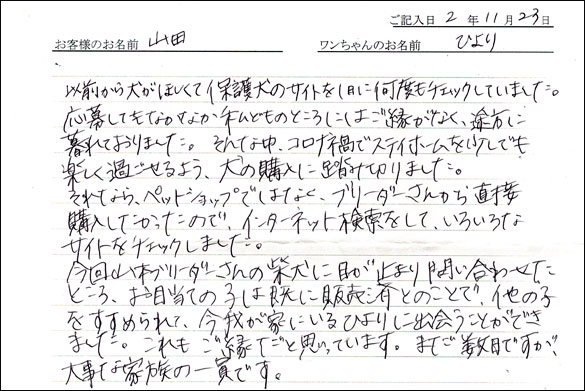 ご記入日 2 年 11 月 23 日
お客様のお名前 山田 ワンちゃんのお名前 ひより
以前から犬がほしくて保護犬のサイトを1日に何度もチェックしていました。
応募してもなかなか私どものところにはご縁がなく、途方に
暮れておりました。そんな中、コロナ禍でステイホームを少しでも
楽しく過ごせるよう、犬の購入に踏み切りました。
それなら、ペットショップではなく、ブリーダーさんから直接
購入したかったので、インターネット検索をして、いろいろな
サイトをチェックしました。
今回山本ブリーダーさんの柴犬に目が止まり問い合わせた
ところ、お目当ての子は既に販売済とのことで、他の子
をすすめられて、今我が家にいるひよりに出会うことができ
ました。これもご縁だと思っています。まだ数日ですが、
大事な家族の一員です。